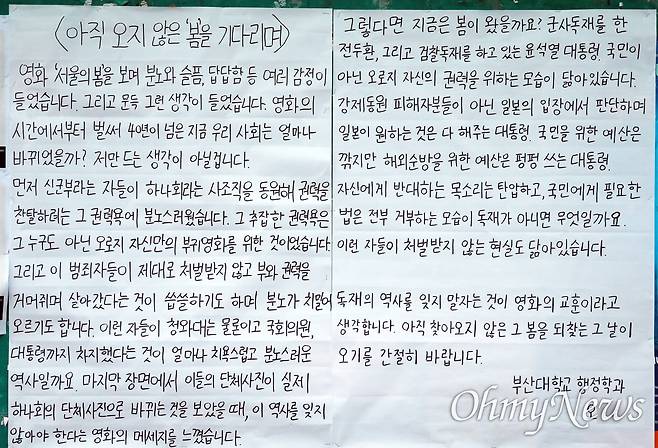 〈아직 오지 않은 '봄'을 기다리며〉
영화 '서울의 봄'을 보며 분노와 슬픔, 답답함 등 여러 감정이
들었습니다. 그리고 문득 그런 생각이 들었습니다. 영화의
시간에서부터 벌써 40년이 넘은 지금 우리 사회는 얼마나
바뀌었을까? 저만 드는 생각이 아닐겁니다.
먼저 신군부라는 자들이 하나회라는 사조직을 동원해 권력을
찬탈하려는 그 권력욕에 분노스러웠습니다. 그 추잡한 권력욕은
그 누구도 아닌 오로지 자신만의 부귀영화를 위한 것이었습니다.
그리고 이 범죄자들이 제대로 처벌받지 않고 부와 권력을
거머쥐며 살아갔다는 것이 씁쓸하기도 하며 분노가 치밀어
오르기도 합니다. 이런 자들이 청와대는 물론이고 국회의원,
대통령까지 차지했다는 것이 얼마나 치욕스럽고 분노스러운
역사일까요. 마지막 장면에서 이들의 단체사진이 실제
하나회의 단체사진으로 바뀌는 것을 보았을 때, 이 역사를 잊지
않아야 한다는 영화의 메세지를 느꼈습니다.
그렇다면 지금은 봄이 왔을까요? 군사독재를 한
전두환, 그리고 검찰독재를 하고 있는 윤석열 대통령. 국민이
아닌 오로지 자신의 권력을 위하는 모습이 닮아있습니다.
강제동원 피해자분들이 아닌 일본의 입장에서 판단하며
일본이 원하는 것은 다 해주는 대통령. 국민을 위한 예산은
깎지만 해외순방을 위한 예산은 펑펑 쓰는 대통령.
자신에게 반대하는 목소리는 탄압하고, 국민에게 필요한
법은 전부 거부하는 모습이 독재가 아니면 무엇일까요.
이런 자들이 처벌받지 않는 현실도 닮아있습니다.
독재의 역사를 잊지 말자는 것이 영화의 교훈이라고
생각합니다. 아직 찾아오지 않은 그 봄을 되찾는 그 날이
오기를 간절히 바랍니다.
부산대학교 행정학과
OhmyNews